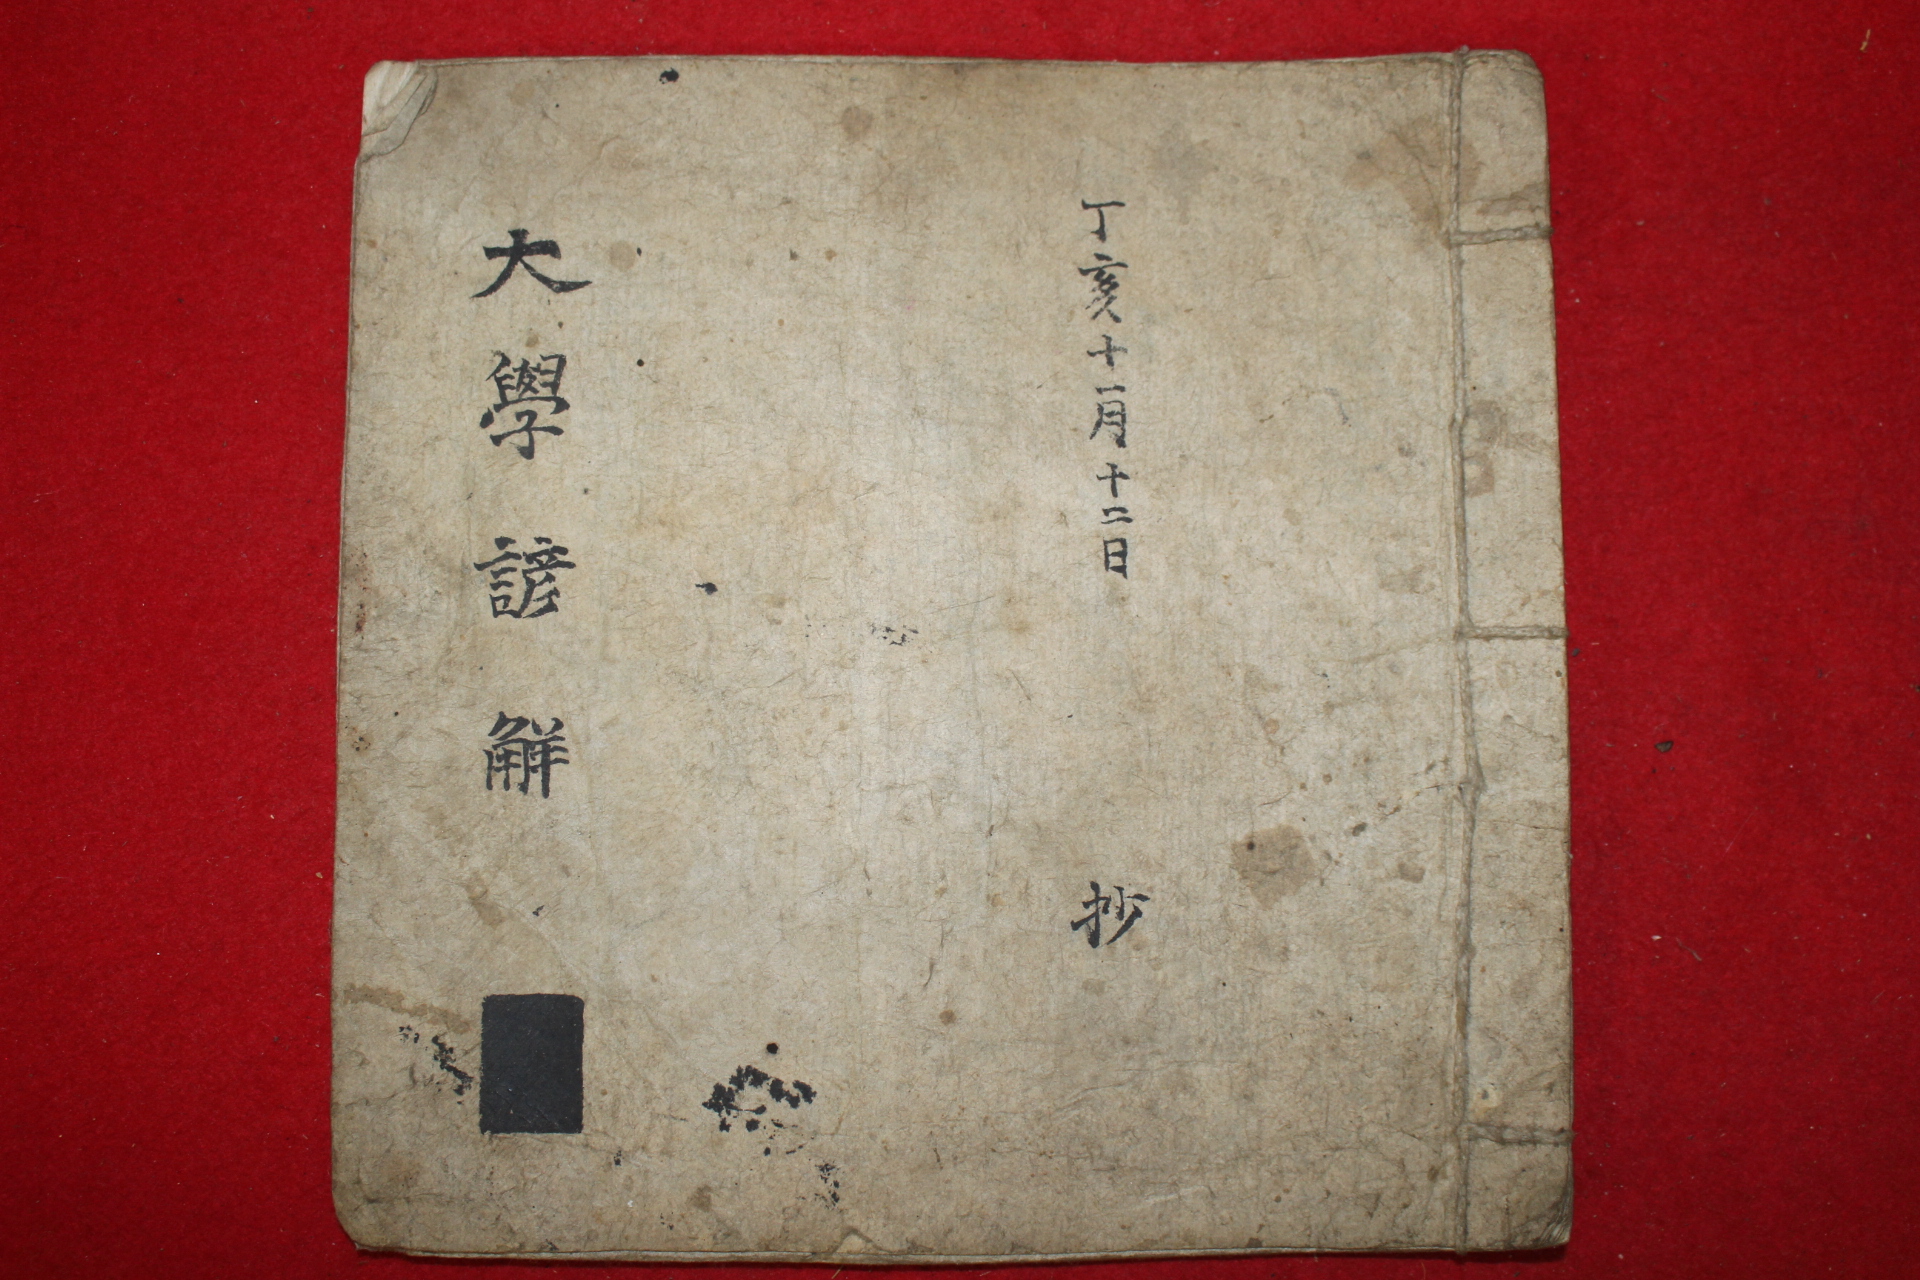 丁亥十一月十二日 抄
大學諺解